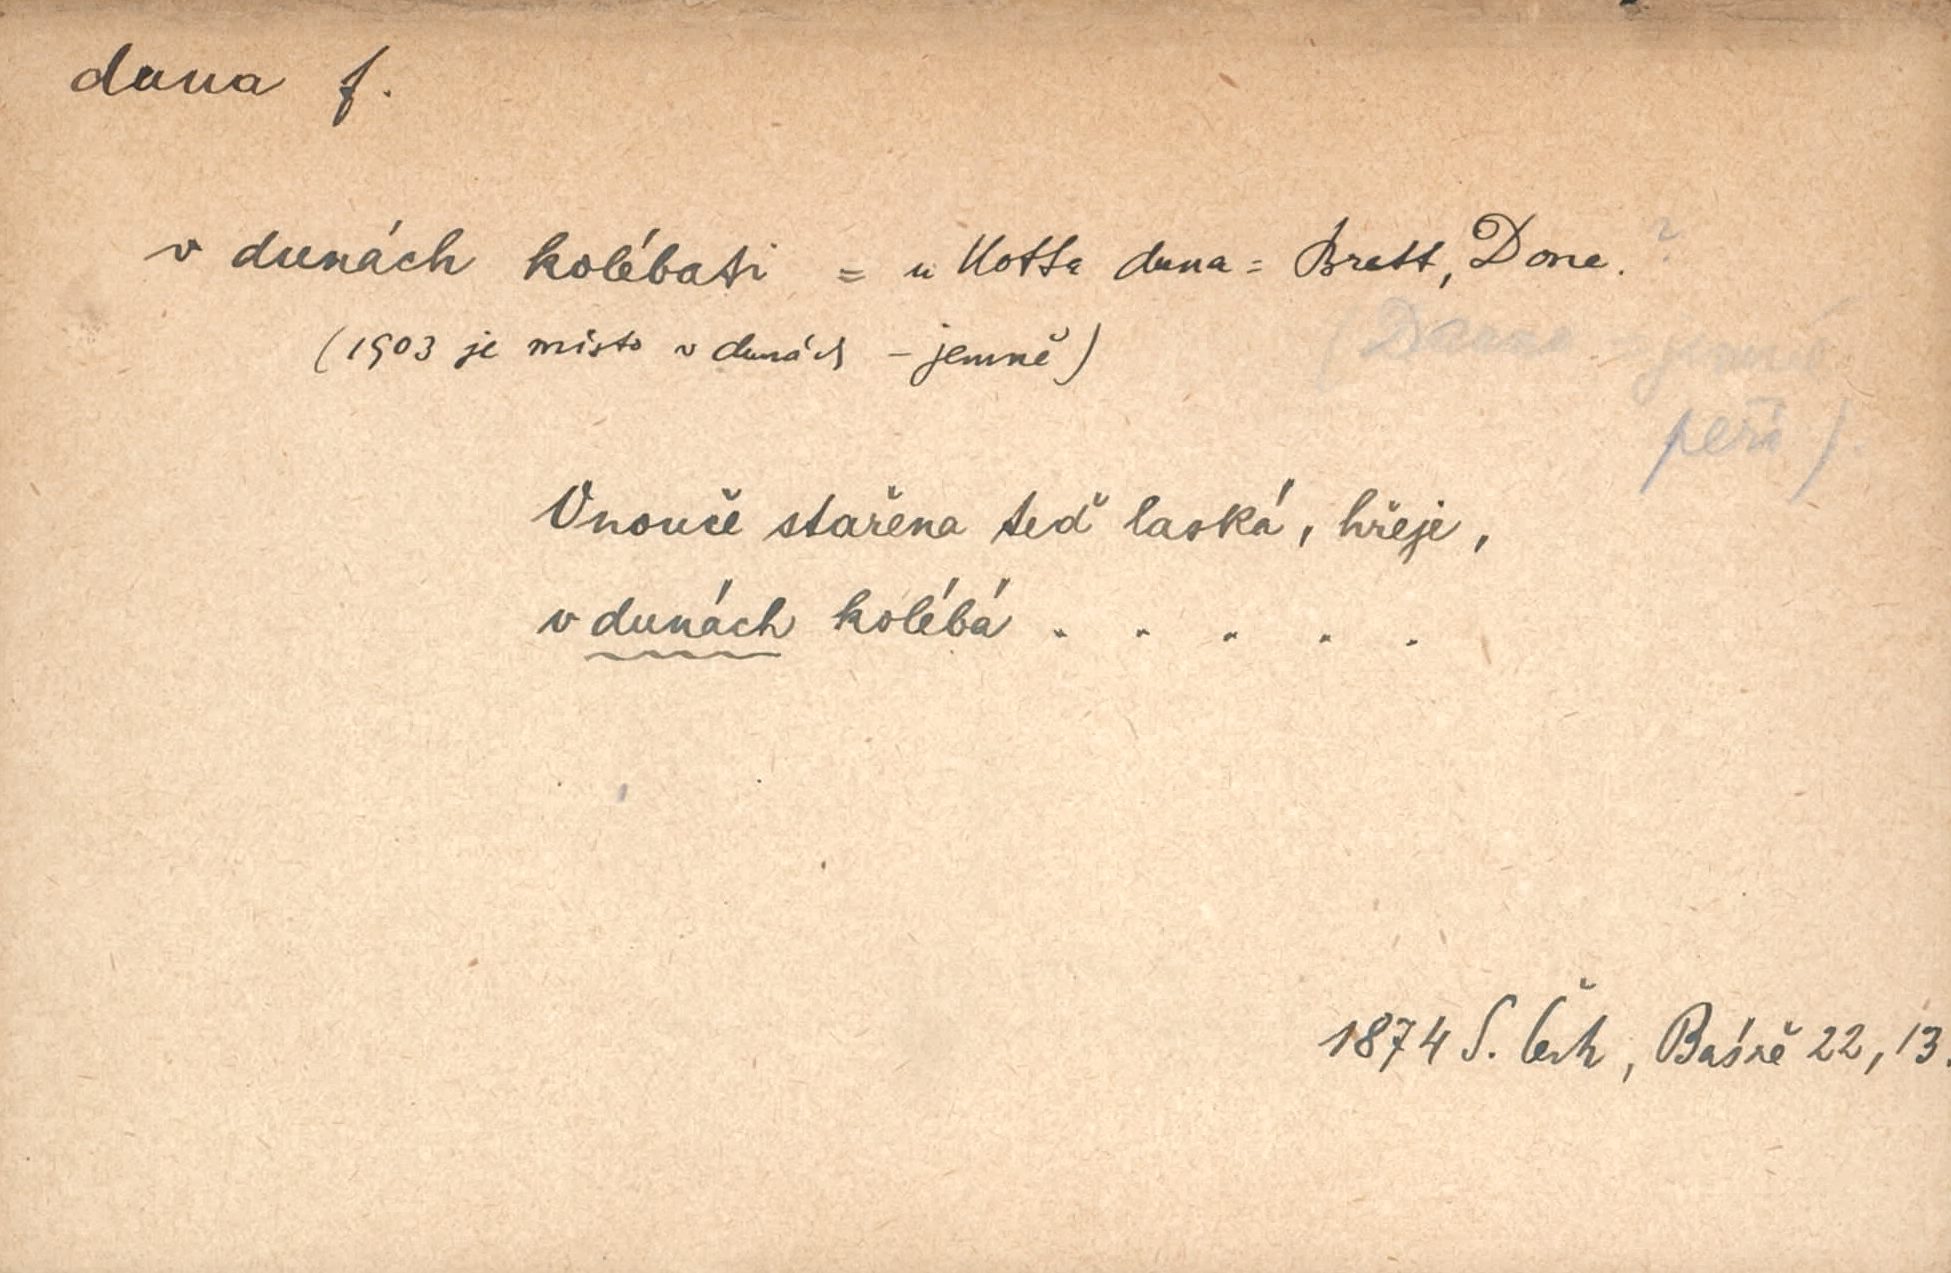 duna f.
v dunách kolébati = u Kotta duna = Brett, Done. ?
(1903 je místo v dunách – jemně)
(Dauna – jemné
peří).
Vnouče stařena teď laská, hřeje,
v dunách kolébá . . . . .
1874 S. Čech, Básně 22, 13.